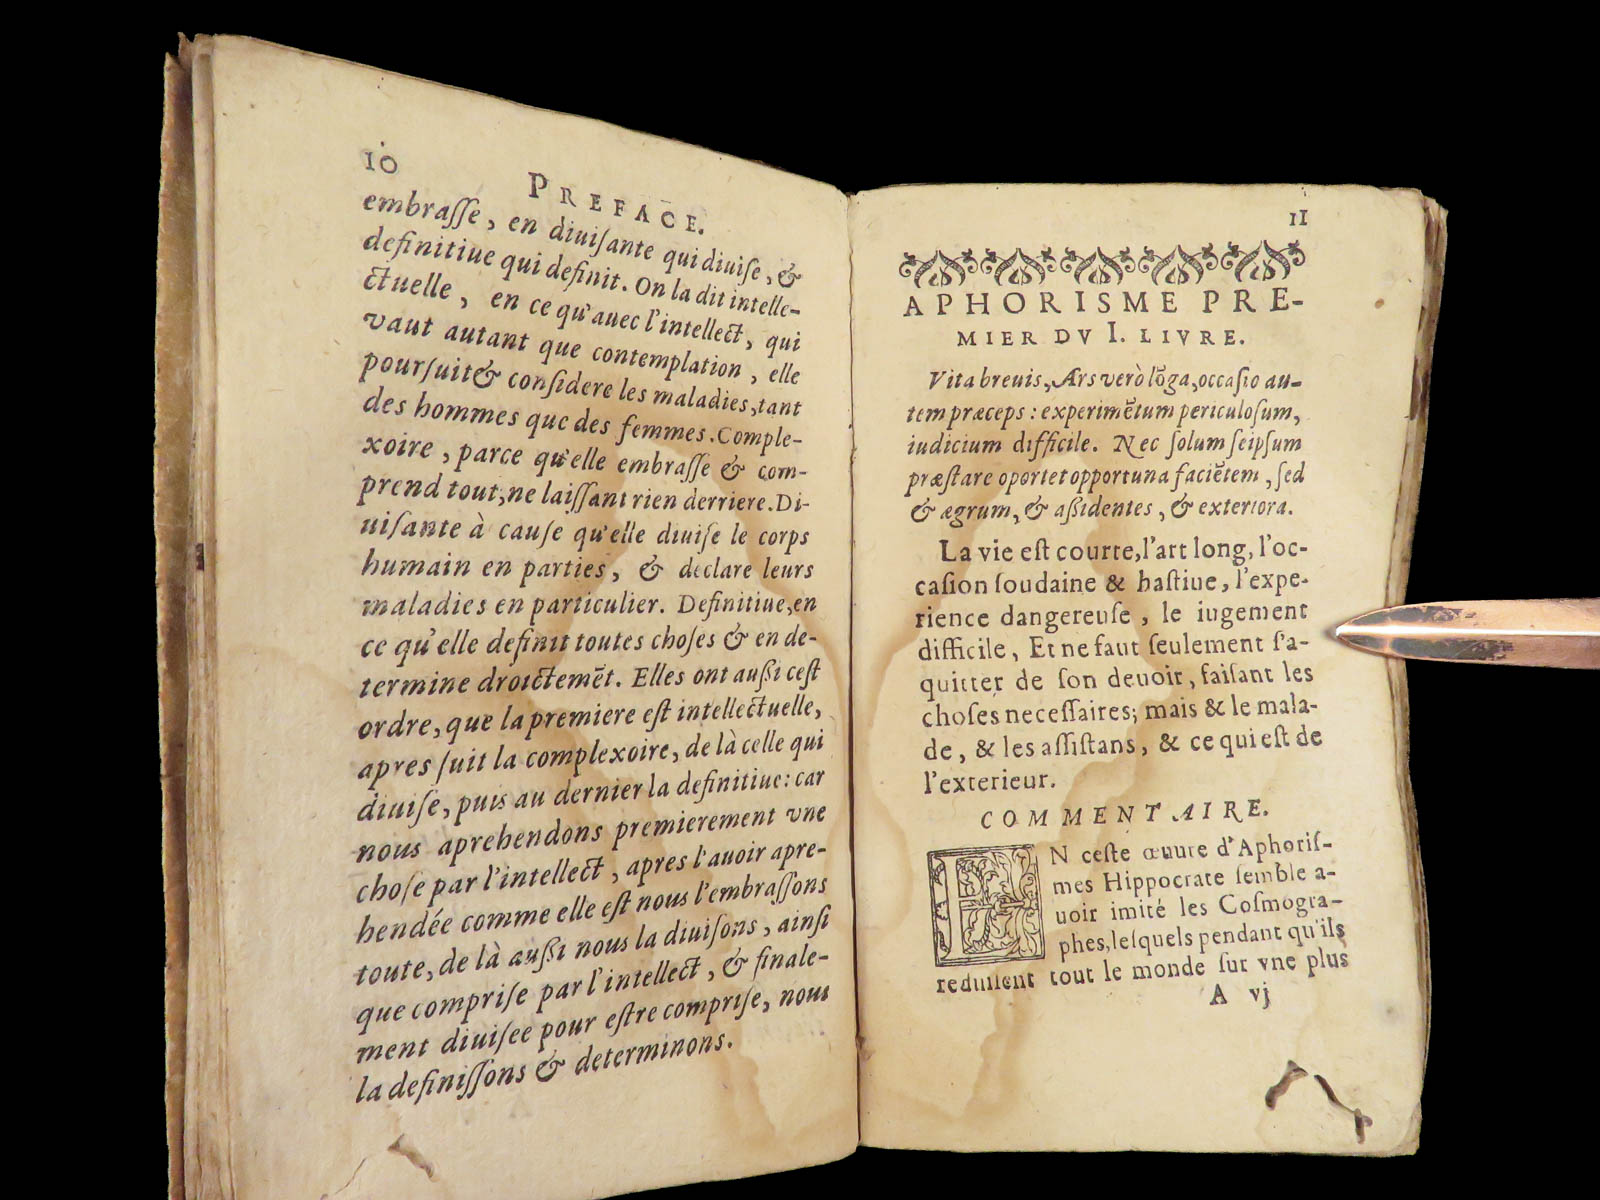 10
PREFACE.
embraſſe, en diuiſante qui diuiſe, &
definitiue qui definit. On la dit intelle-
ctuelle, en ce qu'auec l'intellect, qui
vaut autant que contemplation, elle
pourſuit & conſidere les maladies, tant
des hommes que des femmes. Comple-
xoire, parce qu'elle embraſſe & com-
prend tout, ne laiſſant rien derriere. Di-
uiſante à cauſe qu'elle diuiſe le corps
humain en parties, & declare leurs
maladies en particulier. Definitiue, en
ce qu'elle definit toutes choſes & en de-
termine droictemēt. Elles ont auſsi ceſt
ordre, que la premiere eſt intellectuelle,
apres ſuit la complexoire, de là celle qui
diuiſe, puis au dernier la definitiue: car
nous aprehendons premierement vne
choſe par l'intellect, apres l'auoir apre-
hendée comme elle eſt nous l'embraſſons
toute, de là auſsi nous la diuiſons, ainſi
que compriſe par l'intellect, & finale-
ment diuiſee pour eſtre compriſe, nous
la definiſſons & determinons.
11
APHORISME PRE-
MIER DV I. LIVRE.
Vita breuis, Ars verò lōga, occaſio au-
tem præceps: experimētum periculoſum,
iudicium difficile. Nec ſolum ſeipſum
præſtare oportet opportuna faciētem, ſed
& ægrum, & aſsidentes, & exteriora.
La vie eſt courte, l'art long, l'oc-
caſion ſoudaine & haſtiue, l'expe-
rience dangereuſe, le iugement
difficile, Et ne faut ſeulement ſ'a-
quitter de ſon deuoir, faiſant les
choſes neceſſaires; mais & le mala-
de, & les aſſiſtans, & ce qui eſt de
l'exterieur.
COMMENTAIRE.
EN ceſte œuure d'Aphoriſ-
mes Hippocrate ſemble a-
uoir imité les Coſmogra-
phes, leſquels pendant qu'ils
reduiſent tout le monde ſur vne plus
A vj